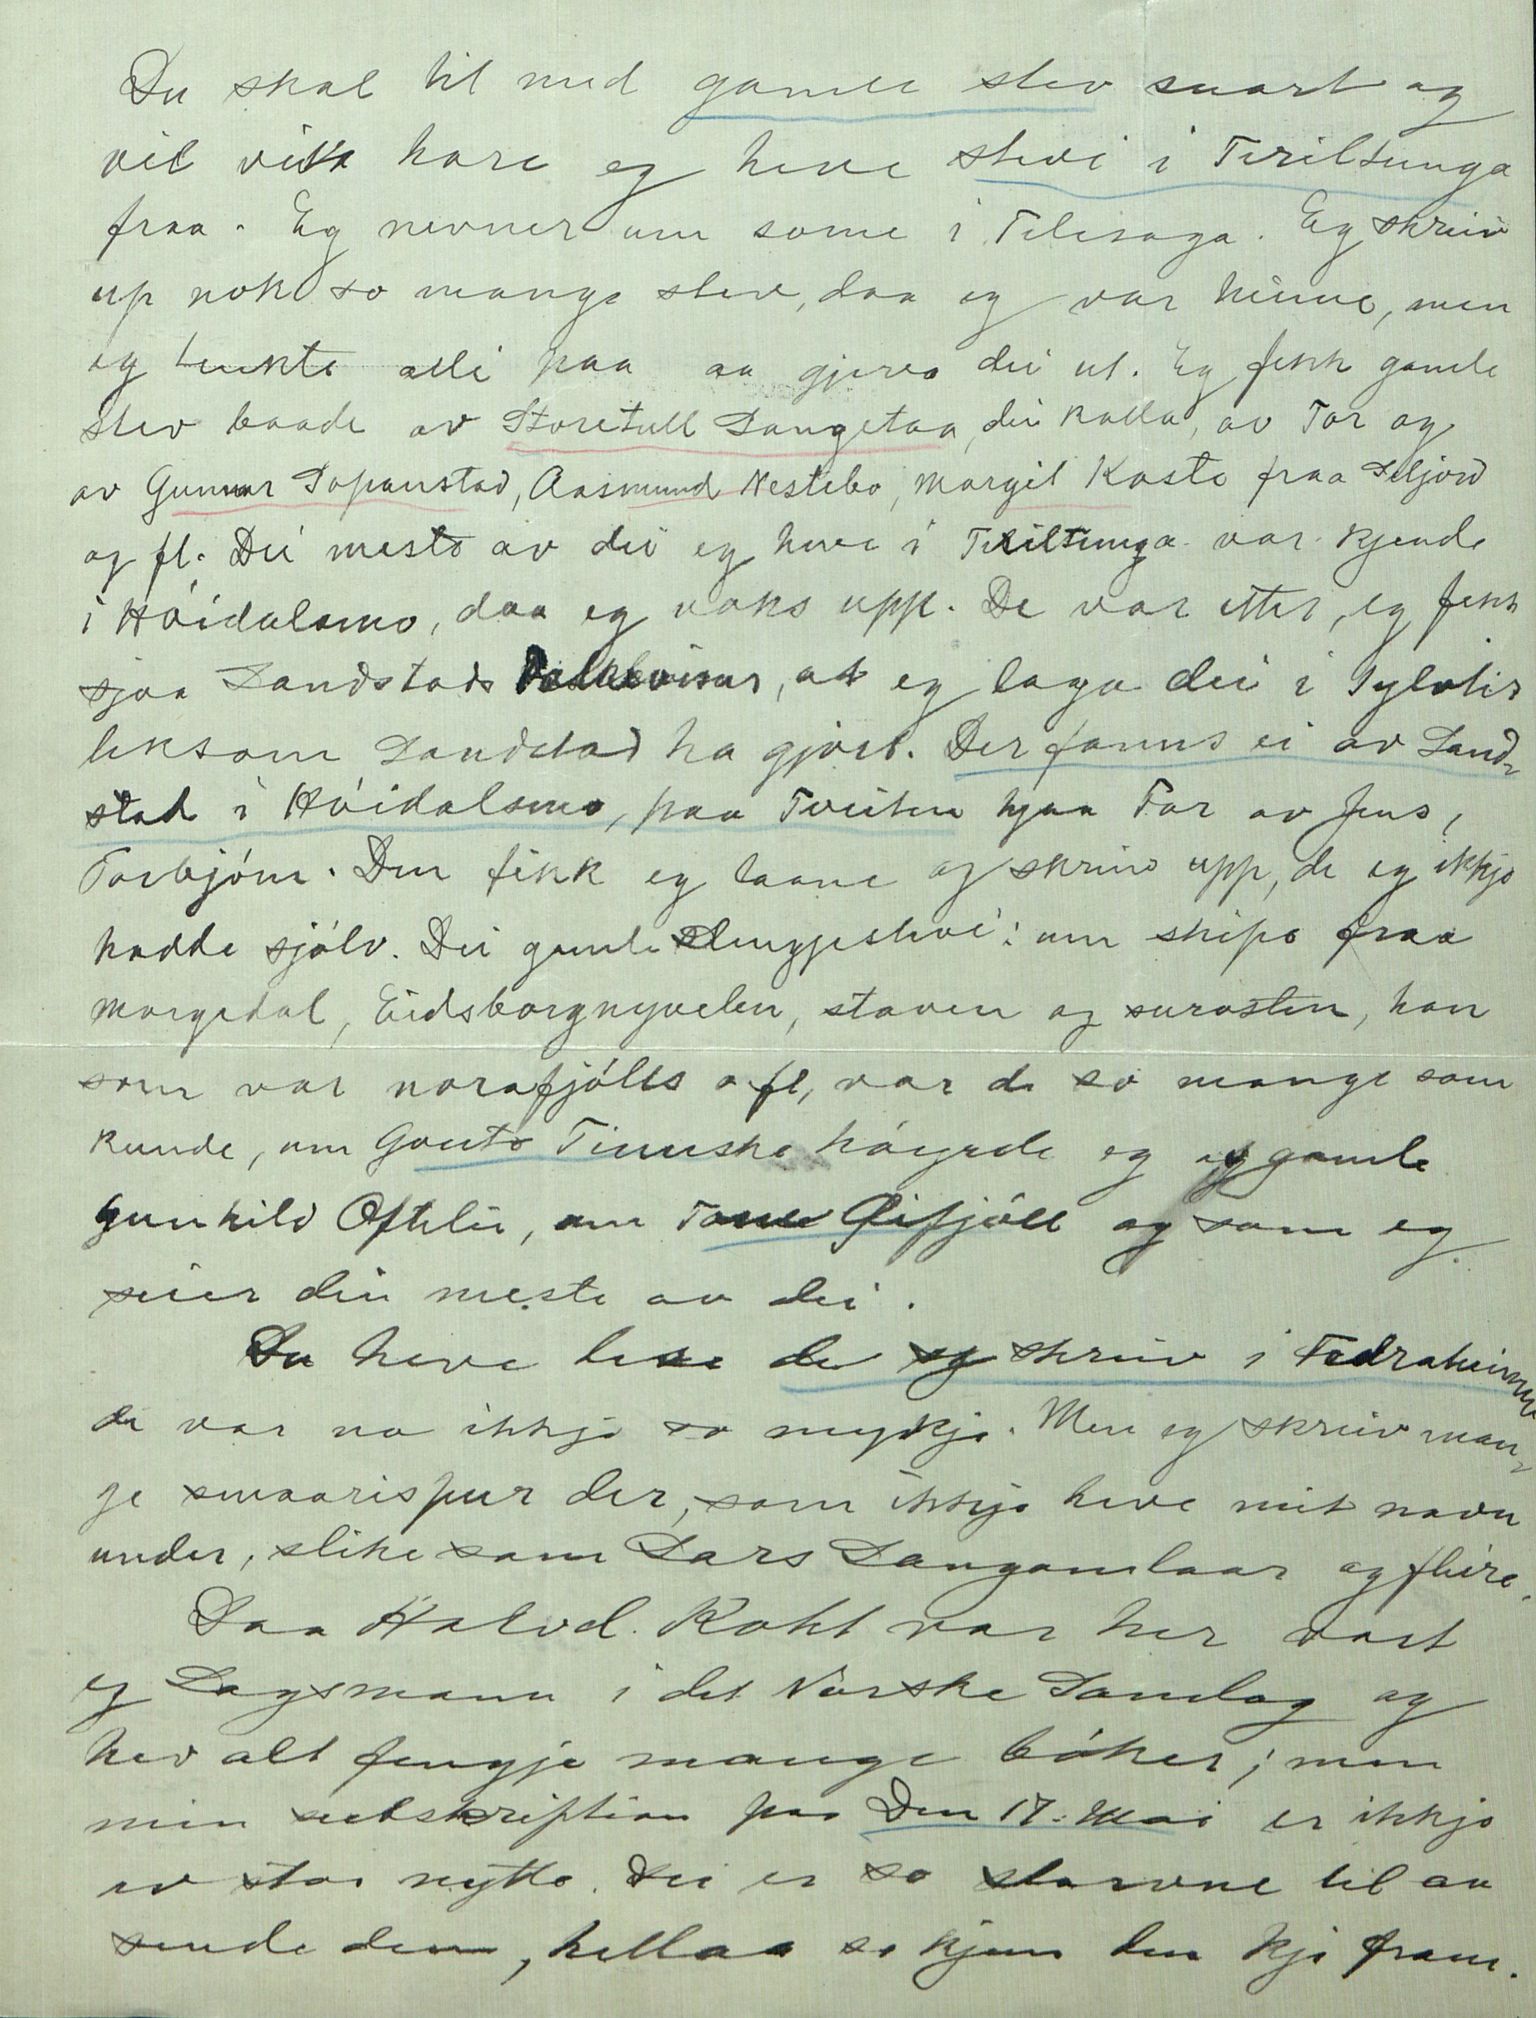 Du skal til med gamle stev snart og
vil vita kore eg heve stevi i Tiriltunga
fraa. Eg nevner um some i Telesoga. Eg skreiv
up nok so mange stev, daa eg var heime, men
eg tenkte alli paa aa gjeva dei ut. Eg fekk gamle
stev baade av Storetull Langetaa, dei kalla, av Tor og
av Gunnar Lopanstad, Aasmund Nestebø, Margit Kaste fraa Seljord
og fl. Dei meste av dei eg heve i Tiriltunga var kjende
i Hóidalsmo, daa eg voks upp. De var etter, eg fekk
sjaa Landstads Folkeviser, at eg laga dei i Tylvtir
liksom Landstad ha gjort. Der fanns ei av Land-
stad i Hóidalsmo, paa Tveiten hjaa Tor av Jens,
Torbjónn. Den fekk eg laane og skreiv upp, de eg ikkje
hadde sjólv. Dei gamle slengjestevi: um skipo fraa
Morgedal, Eidsborgnyvelen, staven og surosten, han
som var norafjólls o fl, var de so mange som
kunde, um Gouto Tinnske hóyrde eg og gamle
Gunhild Oftelie, um Tone Óifjóll og som eg
seier dei meste av dei.
Du heve lese de eg skreiv i Fedraheimen
de var no ikkje so mykje. Men eg skreiv man-
ge smaarispur der, som ikkje heve mit navn
under, slike som Lars Langomlaar og fleire.
Daa Halvd. Koht var her vart
eg Lagsmann i det Norske Samlag og
hev alt fengje mange bóker; men
min subskription paa Den 17: Mai er ikkje
av stor nytte. Dei er so slarvne til aa
sende den, hellaa so kjem den kje fram.